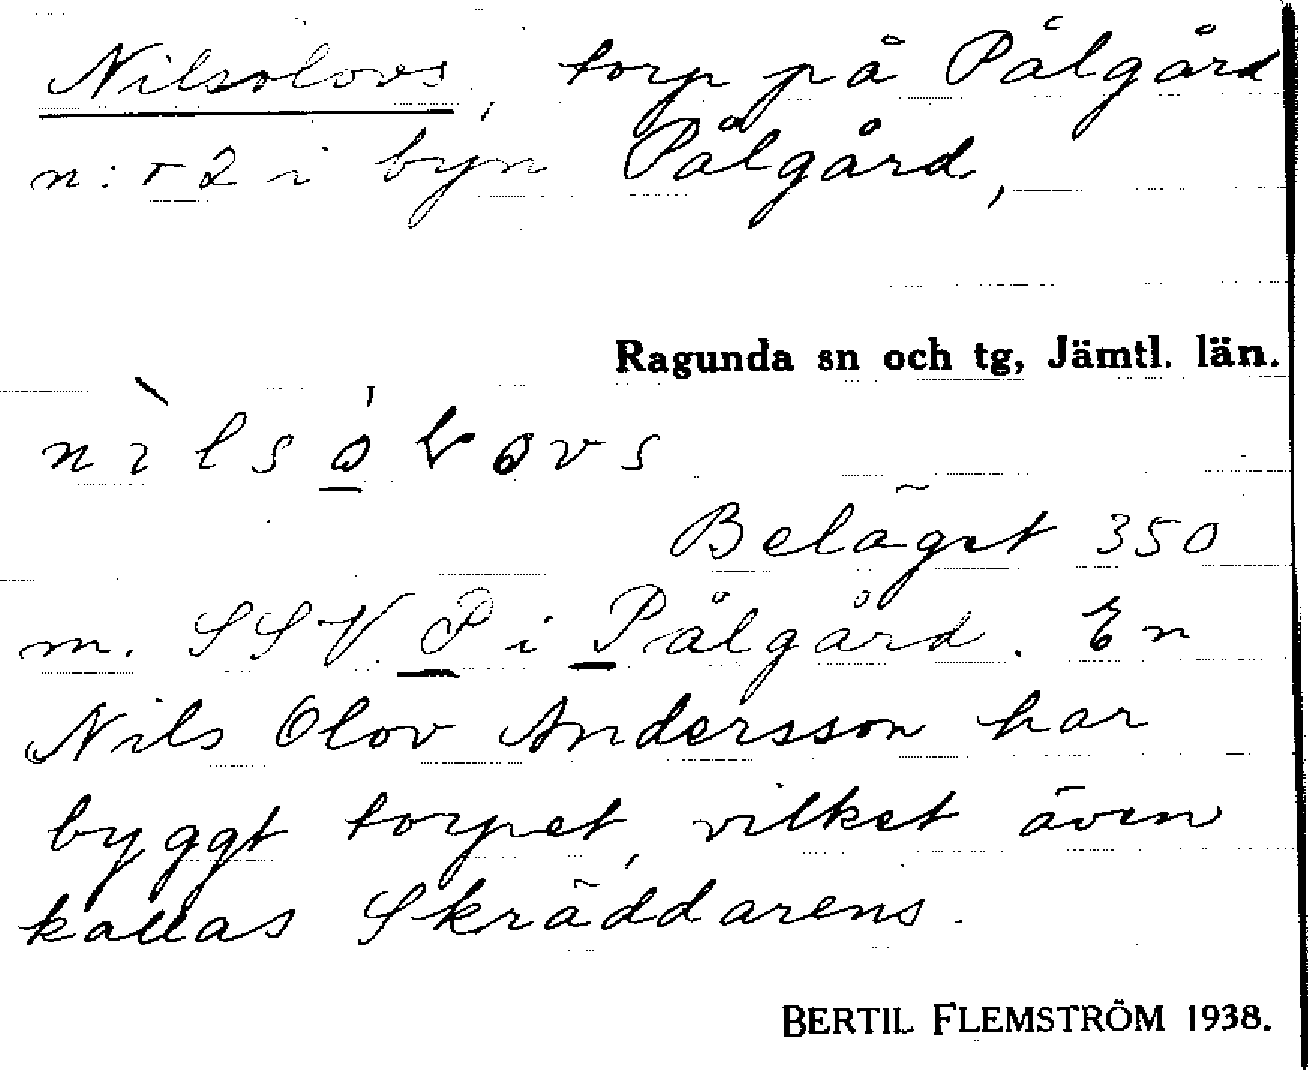 Nilsolovs, torp på Pålgård
n:r 2 i byn Pålgård,
Ragunda sn och tg, Jämtl. län.
nìlsó̱lovs
Beläget 350
m. SSV P i Pålgård. En
Nils Olov Andersson har
byggt torpet, vilket även
kallas Skräddarens.
BERTIL FLEMSTRÖM 1938.